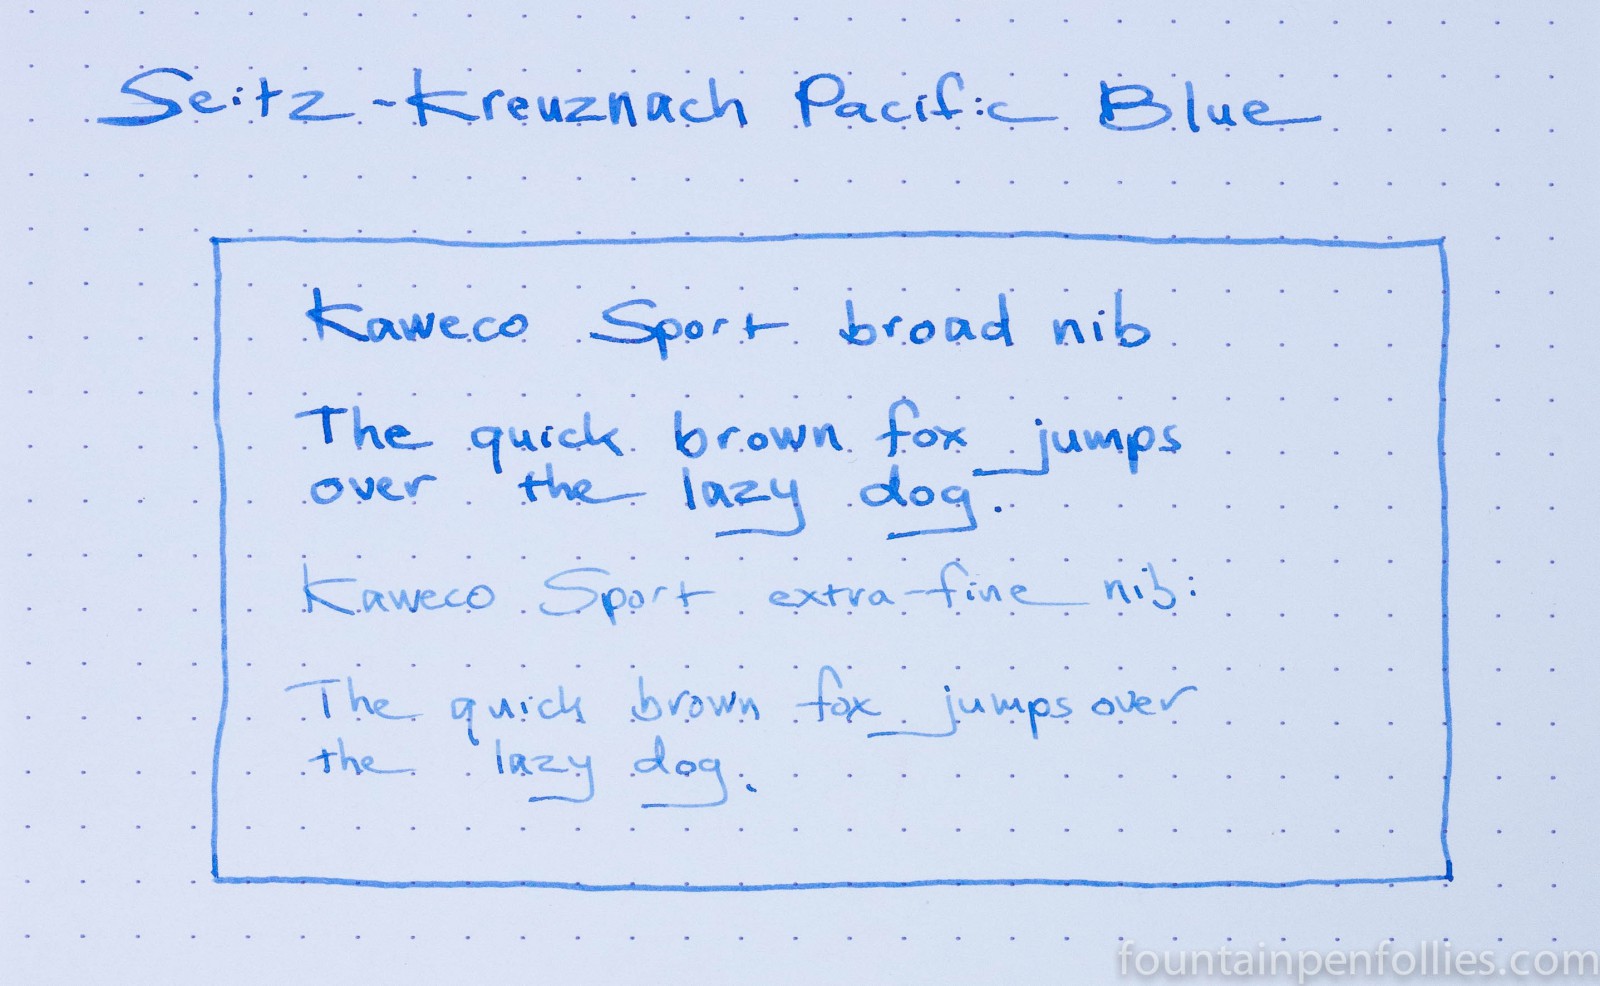 Seitz-Kreuznach Pacific Blue
Kaweco Sport broad nib
The quick brown fox jumps
over the lazy dog.
Kaweco Sport extra-fine nib:
The quick brown fox jumps over
the lazy dog.
fountainpenfollies.com